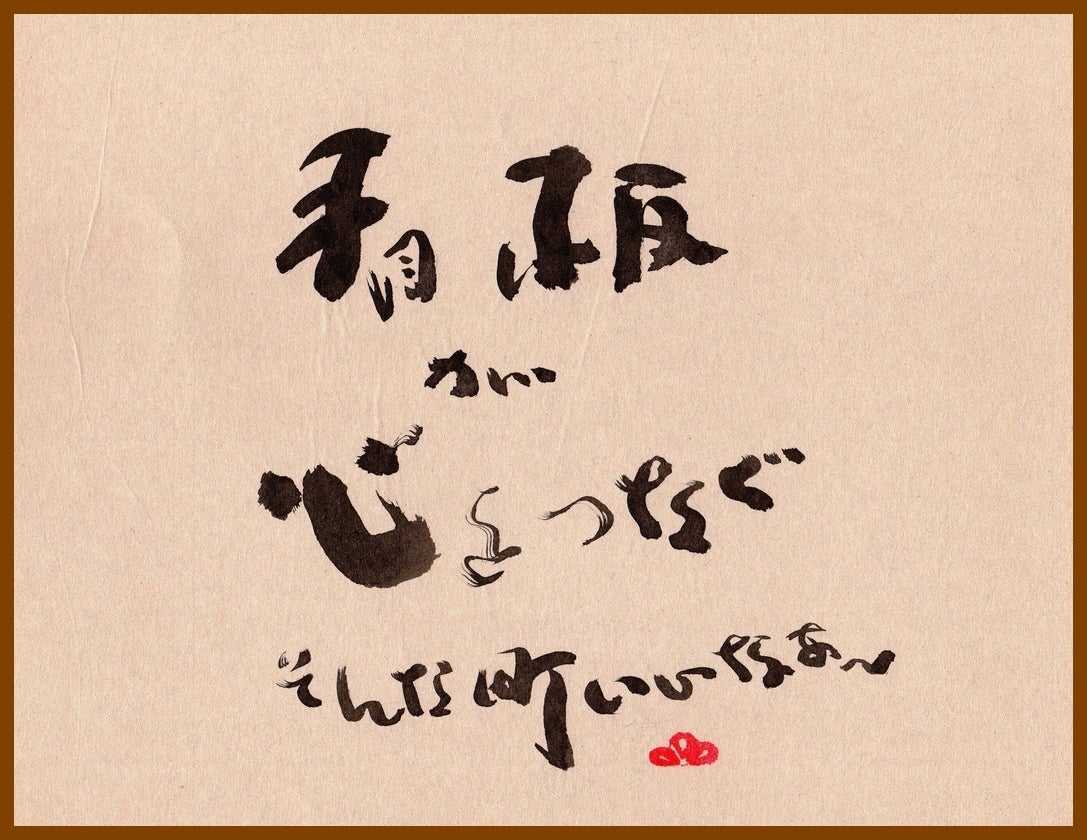 看板
が
心をつなぐ
そんな町いいなあ〜